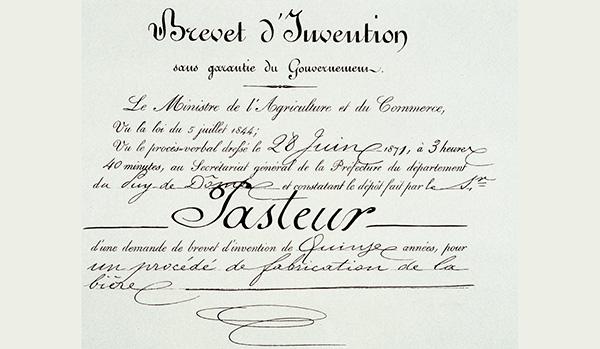 Brevet d'Invention
sans garantie du Gouvernement.
Le Ministre de l'Agriculture et du Commerce,
Vu la loi du 5 juillet 1844;
Vu le procès-verbal dressé le 28 Juin 1871, à 3 heures
40 minutes, au Secrétariat général de la Préfecture du département
du Puy de Dôme et constatant le dépôt fait par le Sr.
Pasteur
d'une demande de brevet d'invention de Quinze années, pour
un procédé de fabrication de la
bière